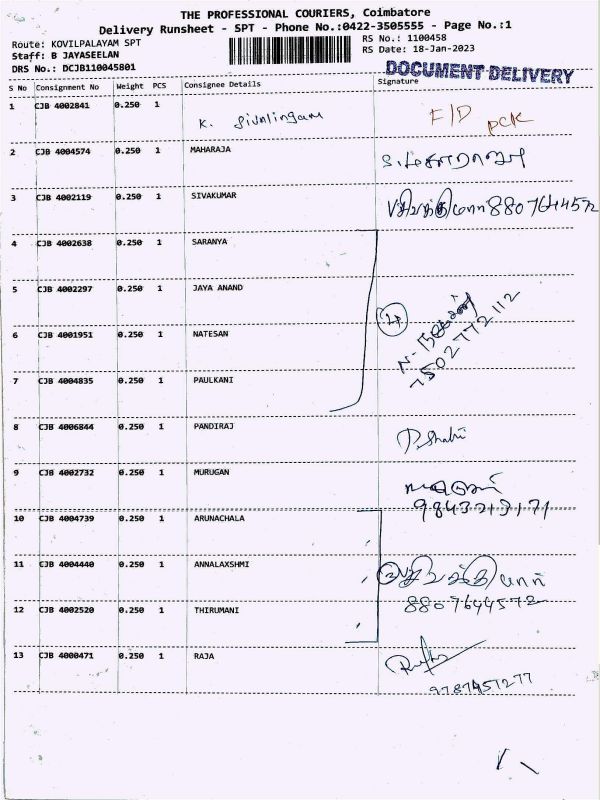 THE PROFESSIONAL COURIERS, Coimbatore
Delivery Runsheet - SPT - Phone No.:0422-3505555 - Page No.:1
Route: KOVILPALAYAM SPT
RS No.: 1100458
Staff: B JAYASEELAN
RS Date: 18-Jan-2023
DRS No.: DCJB110045801
DOCUMENT DELIVERY
S No Consignment No Weight PCS Consignee Details Signature
1 CJB 4002841 0.250 1 K. Sivalingam F/D
2 CJB 4004574 0.250 1 MAHARAJA
3 CJB 4002119 0.250 1 SIVAKUMAR 8807644572
4 CJB 4002638 0.250 1 SARANYA
5 CJB 4002297 0.250 1 JAYA ANAND
6 CJB 4001951 0.250 1 NATESAN 7502772112
7 CJB 4004835 0.250 1 PAULKANI
8 CJB 4006844 0.250 1 PANDIRAJ
9 CJB 4002732 0.250 1 MURUGAN
9843213171
10 CJB 4004739 0.250 1 ARUNACHALA
11 CJB 4004440 0.250 1 ANNALAXSHMI
12 CJB 4002520 0.250 1 THIRUMANI 8807644572
13 CJB 4000471 0.250 1 RAJA
9787457277